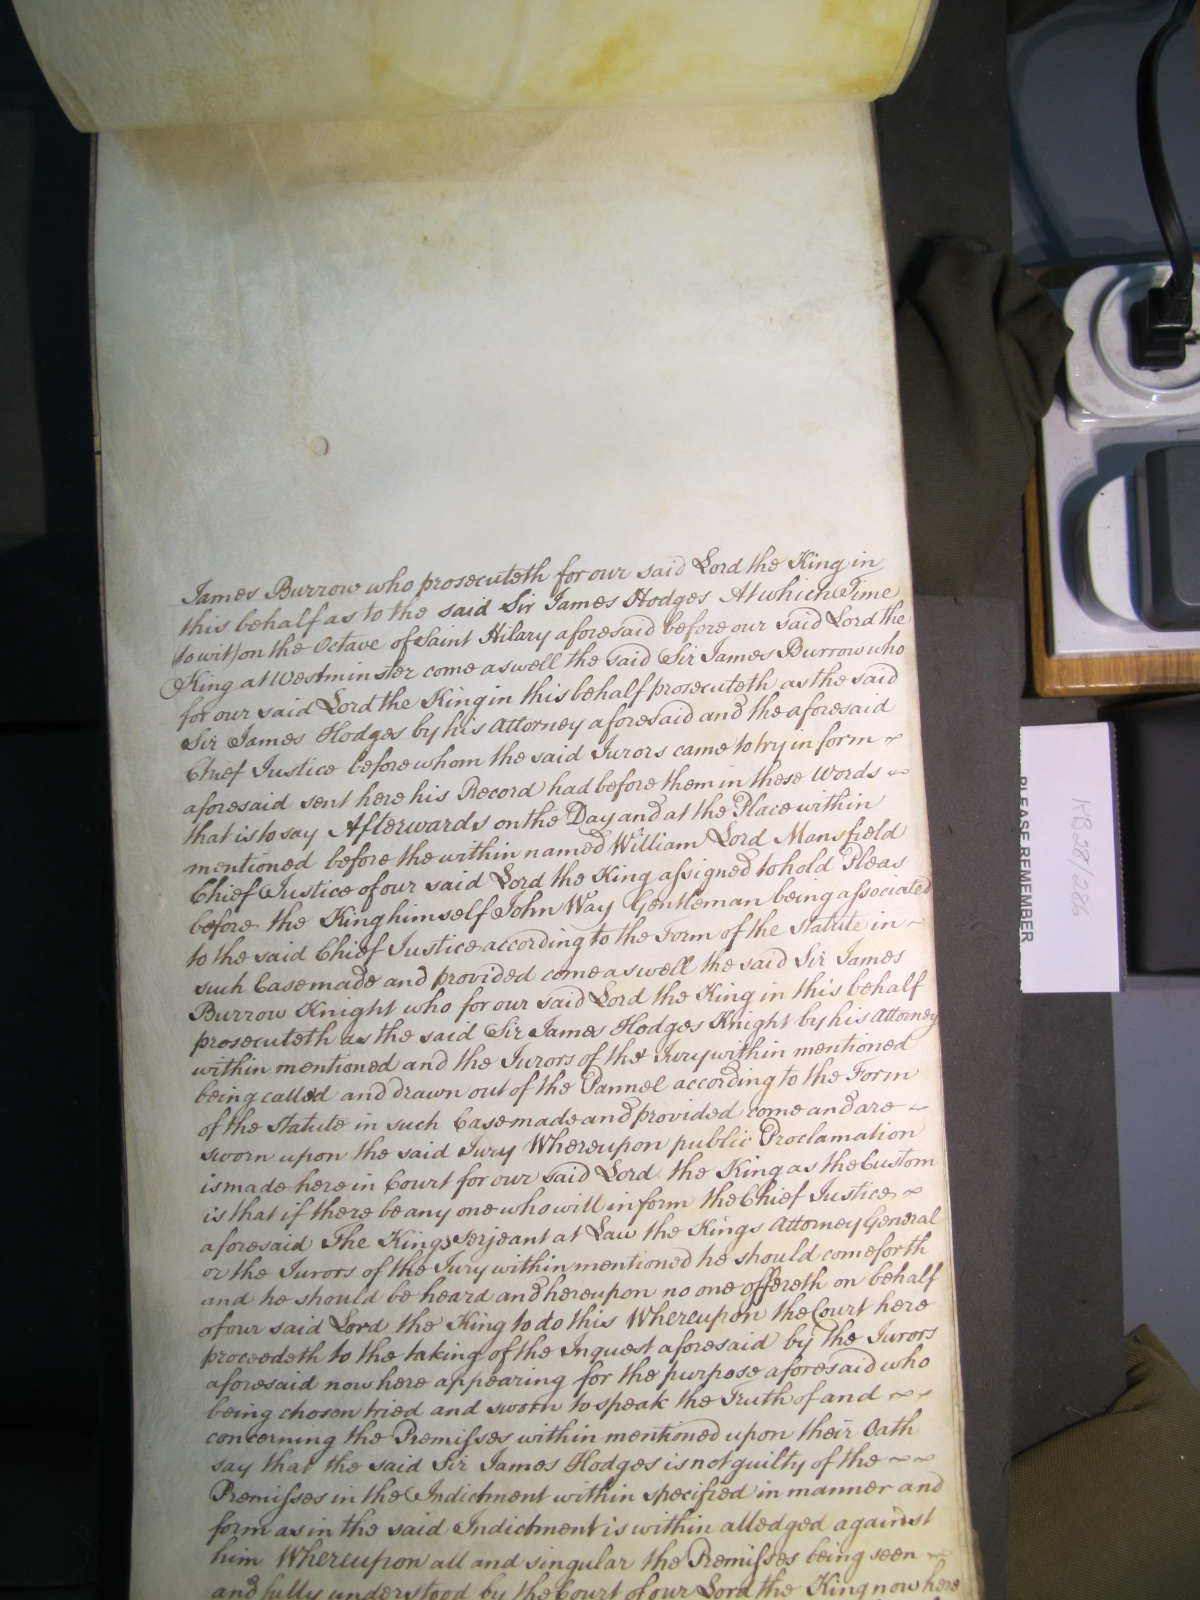 James Burrow who prosecuteth for our said Lord the King in
this behalf as to the said Sir James Hodges At which Time
(to wit) on the Octave of Saint Hilary aforesaid before our said Lord the
King at Westminster come aswell the said Sir James Burrow who
for our said Lord the King in this behalf prosecuteth as the said
Sir James Hodges by his Attorney aforesaid and the aforesaid
Chief Justice before whom the said Jurors came to try in form ~
aforesaid sent here his Record had before them in these Words ~
that is to say Afterwards on the Day and at the Place within
mentioned before the within named William Lord Mansfield
Chief Justice of our said Lord the King assigned to hold Pleas
before the King himself John Way Gentleman being associated
to the said Chief Justice according to the Form of the Statute in ~
such Case made and provided come aswell the said Sir James
Burrow Knight who for our said Lord the King in this behalf
prosecuteth as the said Sir James Hodges Knight by his Attorney
within mentioned and the Jurors of the Jury within mentioned
being called and drawn out of the Pannel according to the Form
of the Statute in such Case made and provided come and are ~
sworn upon the said Jury Whereupon public Proclamation
is made here in Court for our said Lord the King as the Custom
is that if there be any one who will inform the Chief Justice ~
aforesaid The Kings Serjeant at Law the Kings Attorney General
or the Jurors of the Jury within mentioned he should come forth
and he should be heard and hereupon no one offereth on behalf
of our said Lord the King to do this Whereupon the Court here
proceedeth to the taking of the Inquest aforesaid by the Jurors
aforesaid now here appearing for the purpose aforesaid who
being chosen tried and sworn to speak the Truth of and ~ ~
concerning the Premisses within mentioned upon their Oath
say that the said Sir James Hodges is not guilty of the ~ ~
Premisses in the Indictment within specified in manner and
form as in the said Indictment is within alledged against
him Whereupon all and singular the Premisses being seen ~
and fully understood by the Court of our Lord the King now here
PLEASE REMEMBER
KB 28/286